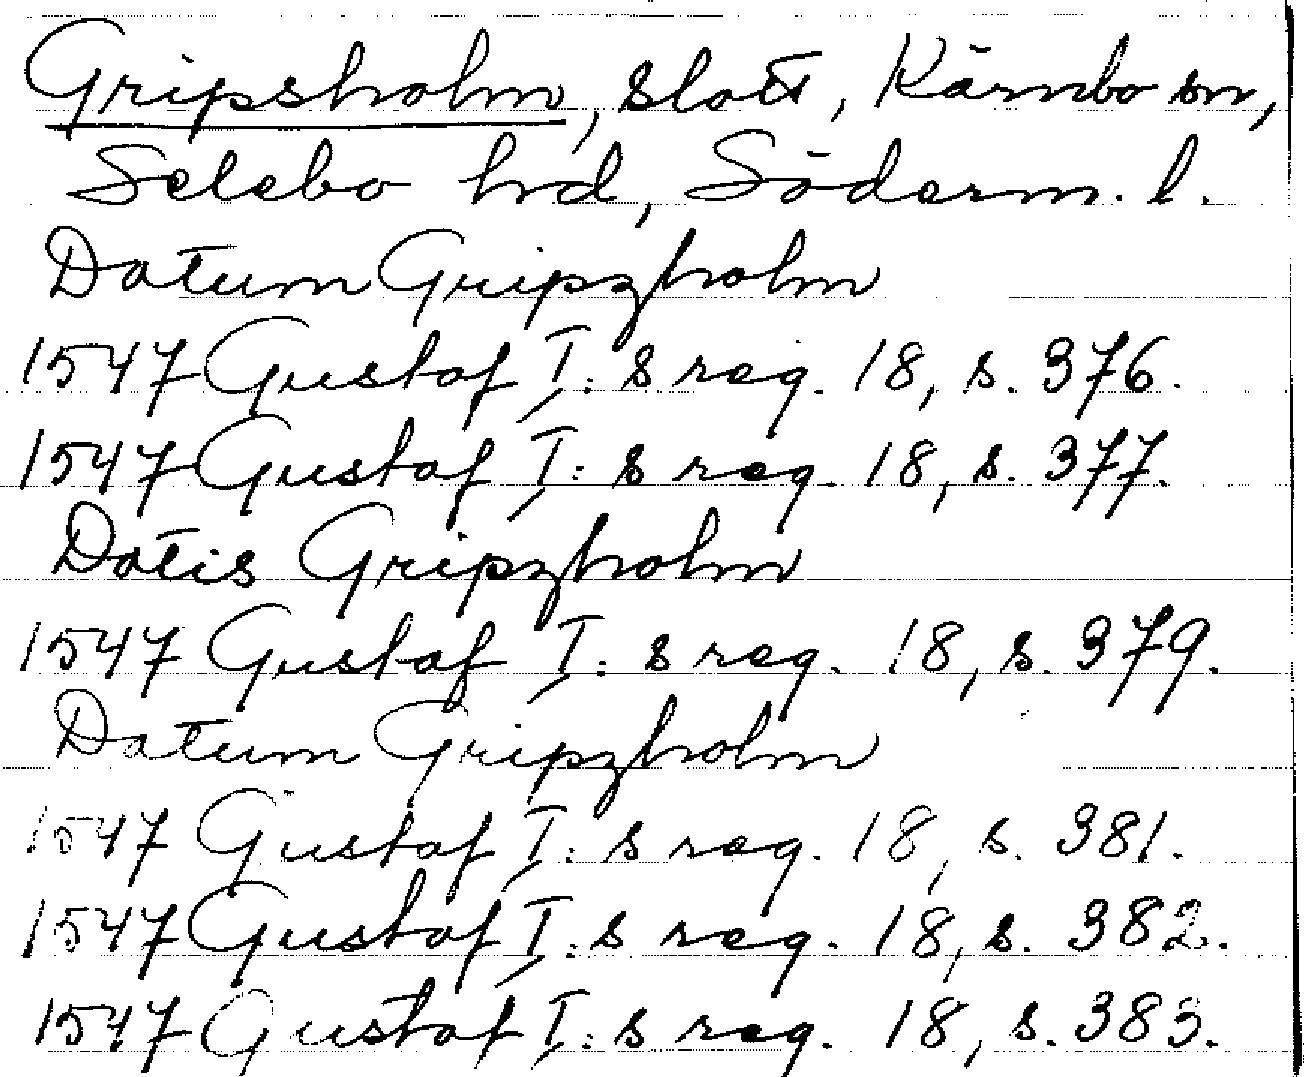 Gripsholm, slott, Kärnbo sn,
Selebo hd, Söderm. l.
Datum Gripzholm
1547 Gustaf I:s reg. 18, s. 376.
1547 Gustaf I:s reg. 18, s. 377.
Datis Gripzholm
1547 Gustaf I:s reg. 18, s. 379.
Datum Gripzholm
1547 Gustaf I:s reg. 18, s. 381.
1547 Gustaf I:s reg. 18, s. 382.
1547 Gustaf I:s reg. 18, s. 383.